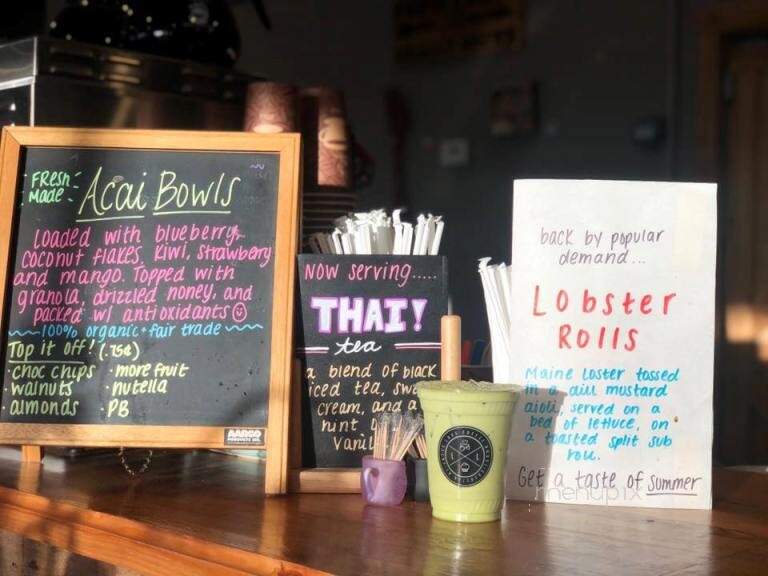 FResh Made
Acai Bowls
Loaded with blueberry,
coconut flakes, Kiwi, strawberry
and mango. Topped with
granola, drizzled honey, and
packed w/ antioxidants
100% organic + fair trade
Top it off! (.75¢)
· choc chips · more fruit
· walnuts · nutella
· almonds · PB
AARCO
NOW serving.....
THAI!
tea
a blend of black
iced tea,
cream, and a
hint
back by popular
demand...
Lobster
Rolls
Maine Loster tossed
in a dill mustard
aioli, served on a
bed of lettuce, on
a toasted split sub
roll.
Get a taste of summer
menupix